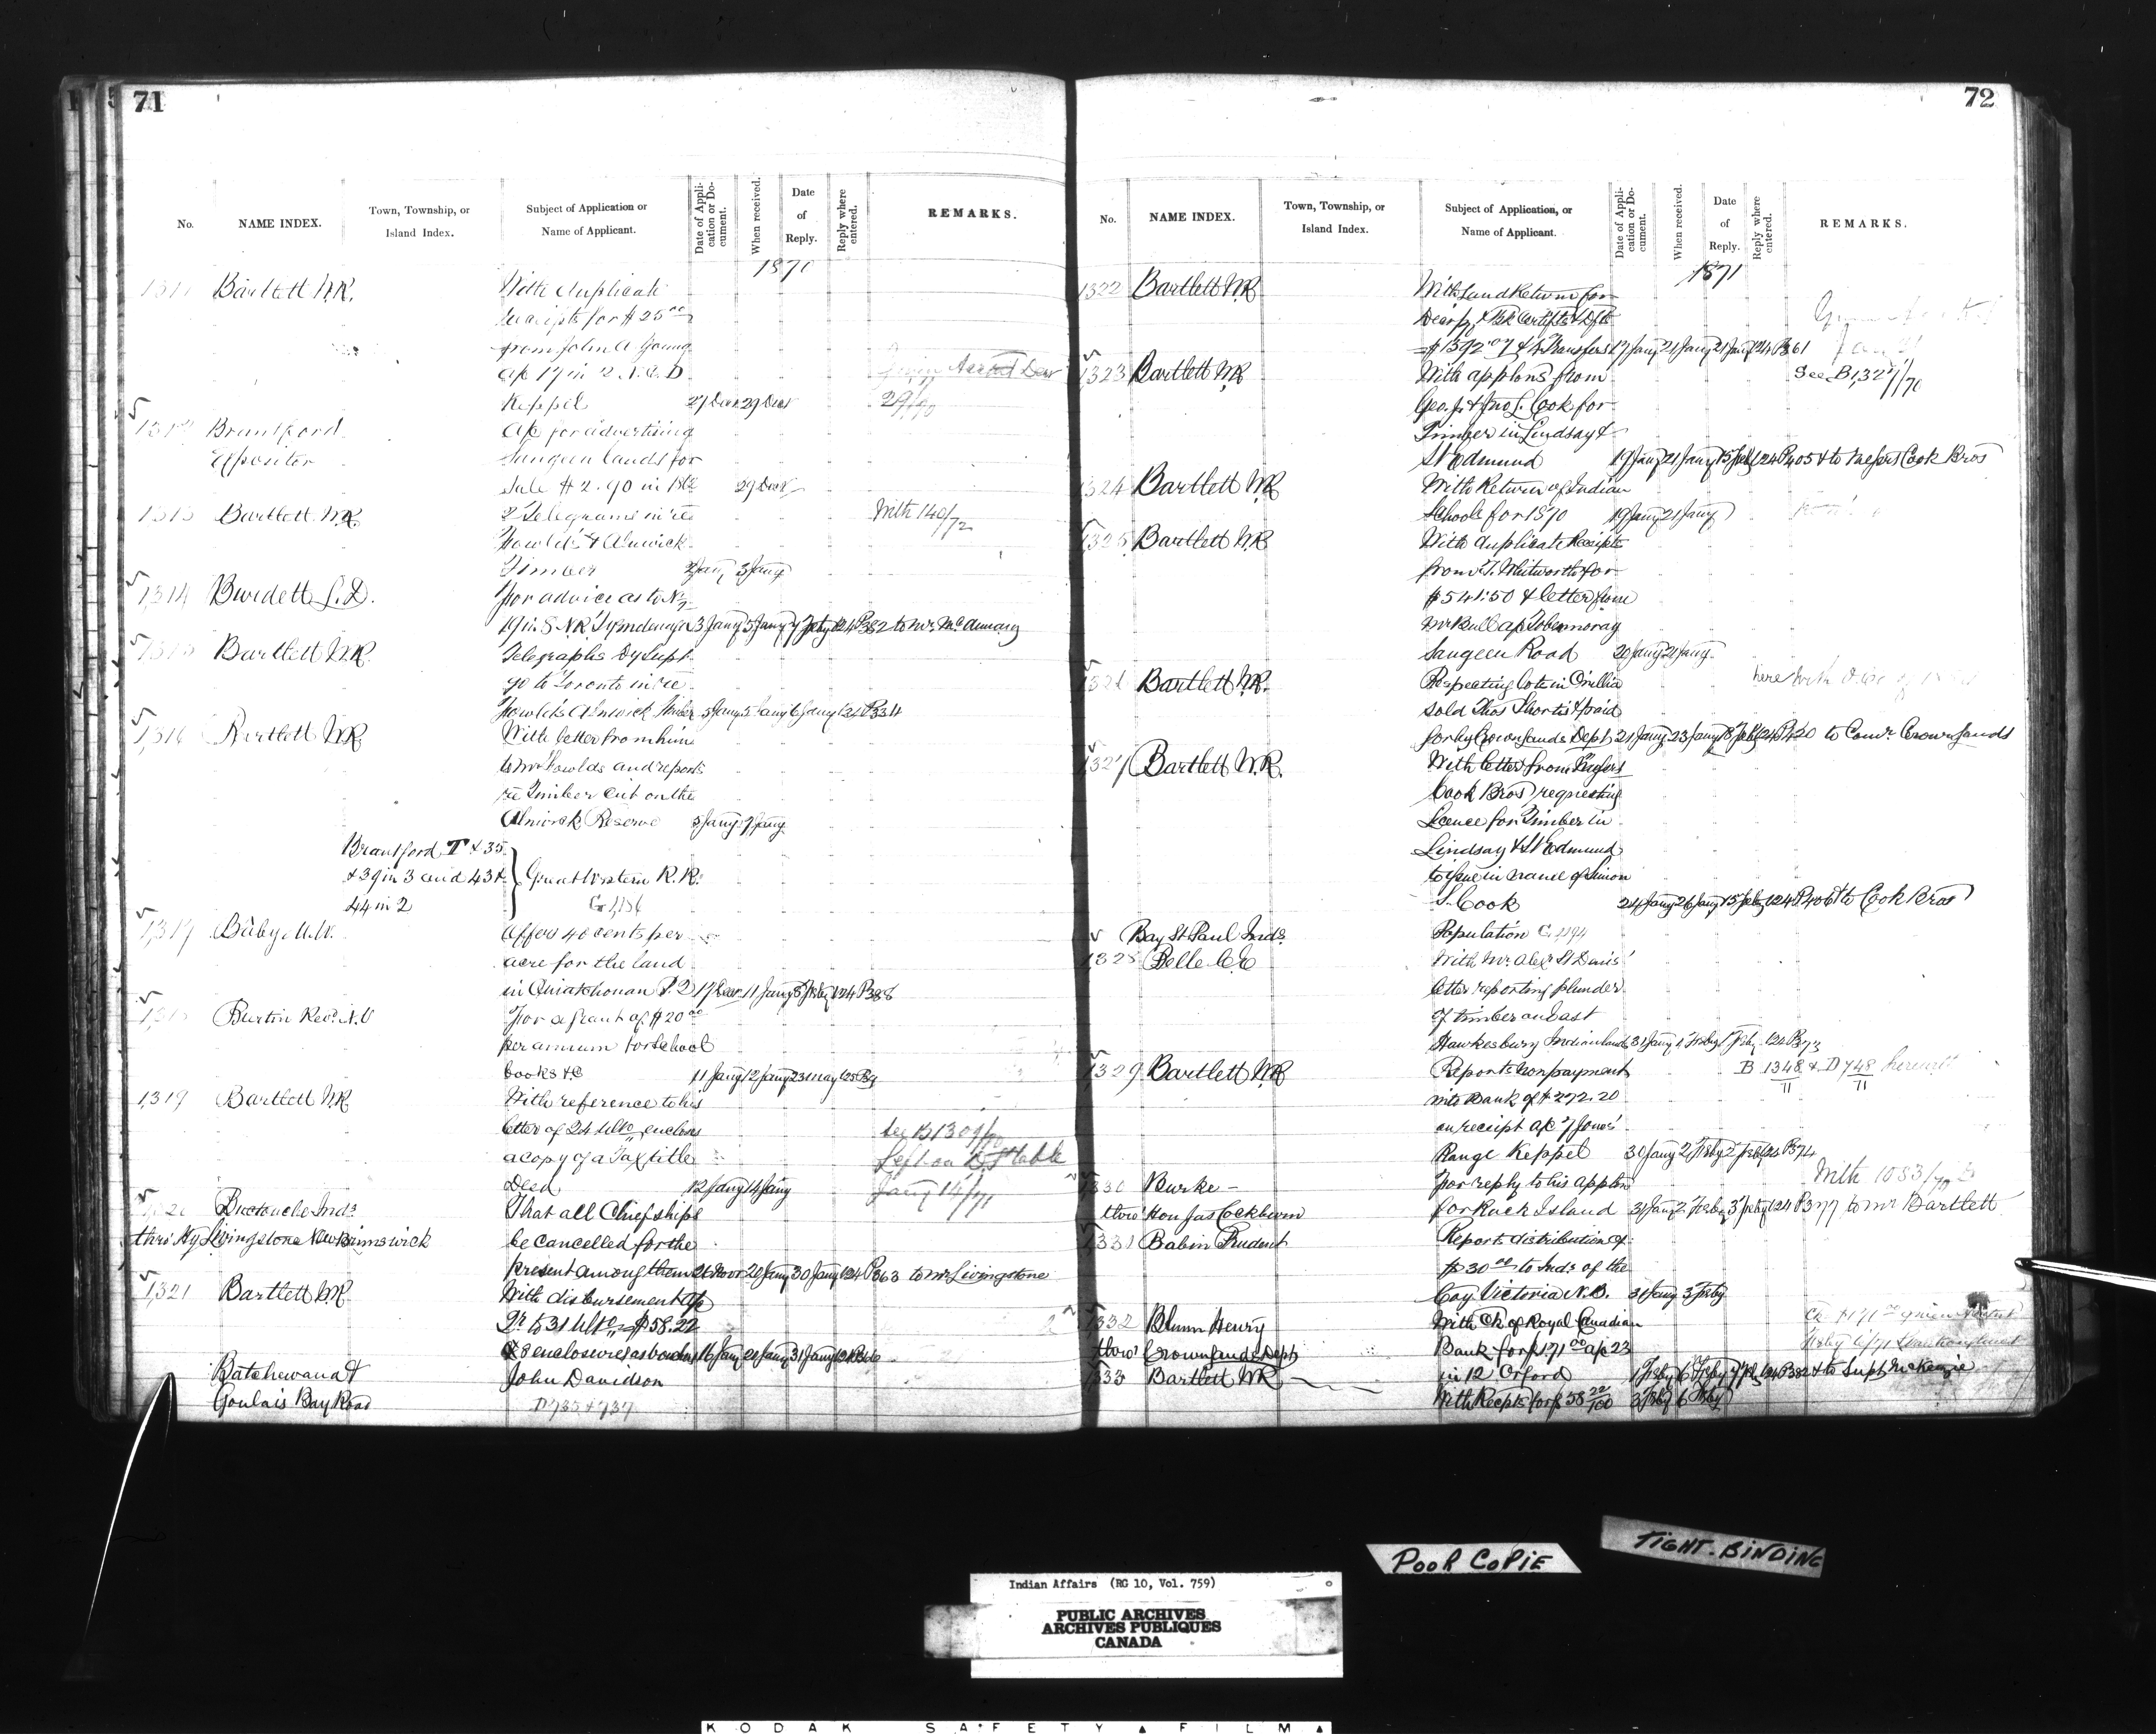 71
No.
NAME INDEX.
Town, Township, or
Island Index.
Subject of Application or
Name of Applicant.
Date of Appli-
cation or Do-
cument.
When received.
Date
of
Reply.
Reply where
entered.
REMARKS.
1870
1311 Bartlett W.R. With duplicate
receipts for $25 00
from John A Young
a/c 17 in 2 N.C.D
Keppel 27 Decr 29 Decr 29/70
1312 Brantford a/c for advertising
Expositor Saugeen lands for
sale $2.90 in 1862 29 Decr
1313 Bartlett W.R. 2 Telegrams in re With 140/72
Fowlds & Alnwick
Timber 2 Jany 3 Jany
1314 Burdett S.D. For advice as to N½
19 in 8 N.R. Tyendinaga 3 Jany 5 Jany 7 Feby 124 P382 to Mr. McAnnany
1315 Bartlett W.R. Telegraphs Dy Supt
go to Toronto in re
Fowlds Alnwick timber 5 Jany 5 Jany 6 Jany 124 P334
1316 Bartlett W.R. With letter from him
to Mr Fowlds and reports
re Timber cut on the
Alnwick Reserve 5 Jany 7 Jany
Brantford T & 35
& 39 in 3 and 43 &
44 in 2
Great Western R.R.
1317 Baby M.W. Offers 40 cents per
acre for the land
in Ouiatchouan P.Q 17 Decr 11 Jany 8 Feby 124 P388
1318 Burtin Revd N.V For a grant of $20 00
per annum for School
books &c 11 Jany 12 Jany 23 May 125 P9
1319 Bartlett W.R. With reference to his
letter of 24 Ulto encloses See B1309/70
a copy of a Tax title Left on D.S. table
Deed 12 Jany 14 Jany Jany 14/71
1320 Buctouche Inds That all Chiefships
thro' Hy Livingstone New Brunswick be cancelled for the
present among them 21 Novr 20 Jany 30 Jany 124 P363 to Mr Livingstone
1321 Bartlett W.R. With disbursement a/c
Qr to 31 Ulto = $58.22
& 8 enclosures as vouchers 16 Jany 20 Jany 31 Jany 124 P366
Batchewana & John Davidson
Goulais Bay Road D735 & 737
72
No.
NAME INDEX.
Town, Township, or
Island Index.
Subject of Application, or
Name of Applicant.
Date of Appli-
cation or Do-
cument.
When received.
Date
of
Reply.
Reply where
entered.
REMARKS.
1871
1322 Bartlett W.R. With Land Return for
Decr /70, & Bk Certifts & Dfts
= $1392.07 & 4 Transfers 17 Jany 21 Jany 21 Jany 124 P361
1323 Bartlett W.R. With applons from See B1,327/70
Geo. J. & Jno L. Cook for
Timber in Lindsay &
St Edmund 19 Jany 21 Jany 15 Feby 124 P405 & to Messrs Cook Bros
1324 Bartlett W.R. With Return of Indian
Schools for 1870 19 Jany 21 Jany
1325 Bartlett W.R. With duplicate Receipts
from T. Whitworth for
$541.50 & letter from
Mr Bull a/c Tobermoray
Saugeen Road 20 Jany 21 Jany
1326 Bartlett W.R. Respecting lots in Orillia
sold Thos Shortis & paid
for by Crown Lands Dept 21 Jany 23 Jany 18 Feby 124 P420 to Comr Crown Lands
1327 Bartlett W.R. With letter from Messrs
Cook Bros requesting
Licence for Timber in
Lindsay & St Edmund
to issue in name of Simon
S. Cook 24 Jany 26 Jany 15 Feby 124 P406 to Cook Bros
Bay St Paul Inds Population
1328 Belle C.E With Mr Alex St Denis'
letter reporting plunder
of timber on East
Hawkesbury Indian lands 31 Jany 1 Feby 1 Feby 124 P373
1329 Bartlett W.R. Reports non payment B 1348/71 & D 748/71 herewith
into Bank of $272.20
on receipt a/c 7 Jones'
Range Keppel 30 Jany 2 Feby 2 Feby 124 P374
1330 Burke — For reply to his applon With 1083/70
thro' Hon Jas Cockburn for Rack Island 31 Jany 2 Feby 3 Feby 124 P377 to Mr Bartlett
1331 Babin Prudent Reports distribution of
$30 00 to Inds of the
Coy Victoria N.B. 31 Jany 3 Feby
1332 Blunn Henry With Ck of Royal Canadian
thro' Crown Lands Dept Bank for $171 00 a/c 23
in 12 Orford 1 Feby 6 Feby 7 Feby 124 P382 & to Supt McKenzie
1333 Bartlett W.R. With Recpts for $58 22/100 3 Feby 6 Feby
POOR COPIE
TIGHT-BINDING
Indian Affairs (RG 10, Vol. 759)
PUBLIC ARCHIVES
ARCHIVES PUBLIQUES
CANADA
KODAK SAFETY FILM